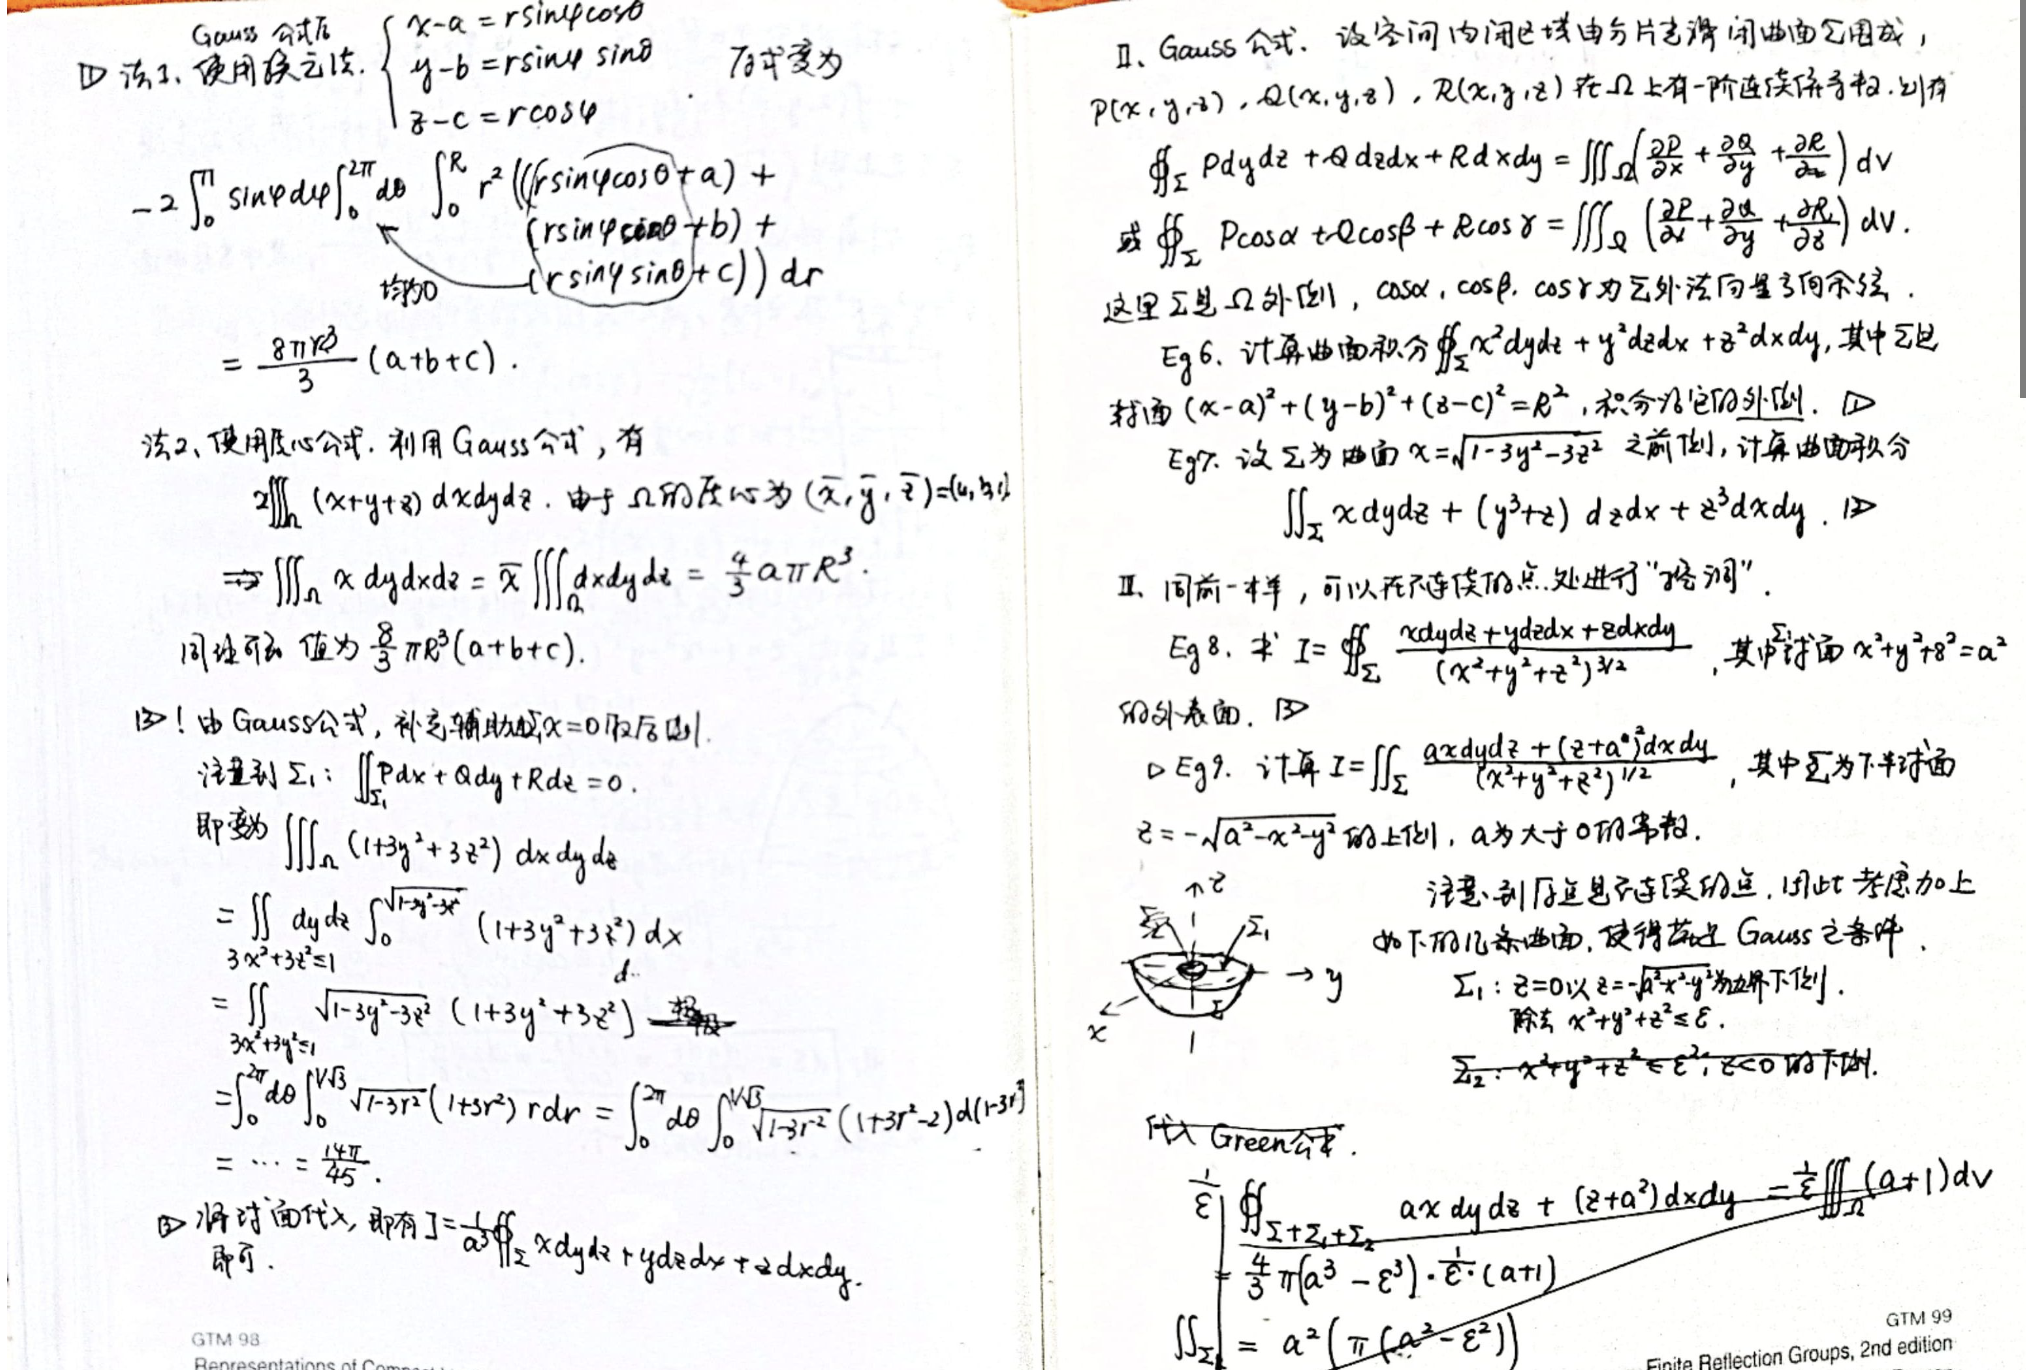 Gauss 公式后
▷ 法1、使用换元法. { x-a = rsinφcosθ
y-b = rsinφ sinθ 原式变为
z-c = rcosφ
-2∫₀^π sinφdφ∫₀^{2π} dθ ∫₀^R r² ((rsinφcosθ+a) +
(rsinφsinθ+b) +
(rsinφsinθ+c)) dr
均为0
= 8πR³/3 (a+b+c).
法2、使用质心公式. 利用 Gauss 公式, 有
2∭_Ω (x+y+z) dxdydz. 由于 Ω的质心为 (x̄, ȳ, z̄)=(a, b, c)
⇒ ∭_Ω x dydxdz = x̄ ∭_Ω dxdydz = 4/3 aπR³.
同理可知 值为 8/3 πR³(a+b+c).
▷! 由 Gauss公式, 补充辅助 x=0 取后侧.
注意到 Σ₁: ∬_{Σ₁} Pdx + Qdy + Rdz = 0.
即变为 ∭_Ω (1+3y²+3z²) dxdydz
= ∬_{3x²+3z²≤1} dydz ∫₀^{√(1-3y²-3z²)} (1+3y²+3z²) dx
= ∬_{3x²+3y²≤1} √(1-3y²-3z²) (1+3y²+3z²) d..
= ∫₀^{2π} dθ ∫₀^{1/√3} √(1-3r²) (1+3r²) rdr = ∫₀^{2π} dθ ∫₀^{1/√3} √(1-3r²) (1+3r²-2) d(1-3r²)
= ... = 14π/45.
▷ 将球面代入, 即有 I = 1/a³ ∯_Σ xdydz + ydzdx + zdxdy.
即可.
GTM 98
Representations of Comp
II、Gauss 公式. 设空间内闭区域由分片光滑闭曲面Σ围成,
P(x,y,z), Q(x,y,z), R(x,y,z) 在 Ω 上有一阶连续偏导数. 则有
∯_Σ Pdydz + Qdzdx + Rdxdy = ∭_Ω (∂P/∂x + ∂Q/∂y + ∂R/∂z) dv
或 ∯_Σ Pcosα + Qcosβ + Rcosγ = ∭_Ω (∂P/∂x + ∂Q/∂y + ∂R/∂z) dv.
这里Σ是 Ω 外侧, cosα, cosβ, cosγ 为Σ外法向量方向余弦.
Eg6. 计算曲面积分 ∯_Σ x²dydz + y²dzdx + z²dxdy, 其中Σ是
球面 (x-a)²+(y-b)²+(z-c)²=R², 积分沿它的外侧. ▷
Eg7. 设Σ为曲面 x=√(1-3y²-3z²) 之前侧, 计算曲面积分
∬_Σ xdydz + (y³+z) dzdx + z³dxdy. ▷
III、同前一样, 可以在不连续的点处进行“挖洞”.
Eg8. 求 I= ∯_Σ (xdydz+ydzdx+zdxdy)/(x²+y²+z²)^{3/2}, 其中Σ:球面 x²+y²+z²=a²
的外表面. ▷
▷ Eg9. 计算 I=∬_Σ (axdydz+(z+a)²dxdy)/(x²+y²+z²)^{1/2}, 其中Σ为下半球面
z=-√(a²-x²-y²) 的上侧, a为大于0的常数.
注意到原点是不连续的点, 因此考虑加上
如下的几条曲面, 使得满足 Gauss 之条件.
z Σ₂ Σ₁ y x Σ
Σ₁: z=0以 z=-√(a²-x²-y²)为边界下侧.
除去 x²+y²+z²≤ε.
Σ₂: x²+y²+z²≤ε², z<0 的下侧.
代入 Green公式.
1/ε ∯_{Σ+Σ₁+Σ₂} ax dydz + (z+a²) dxdy = 1/ε ∭_Ω (a+1) dv
= 4/3 π(a³-ε³)·1/ε·(a+1)
∬_{Σ₁} = a²(π(a²-ε²))
GTM 99
Finite Reflection Groups, 2nd edition